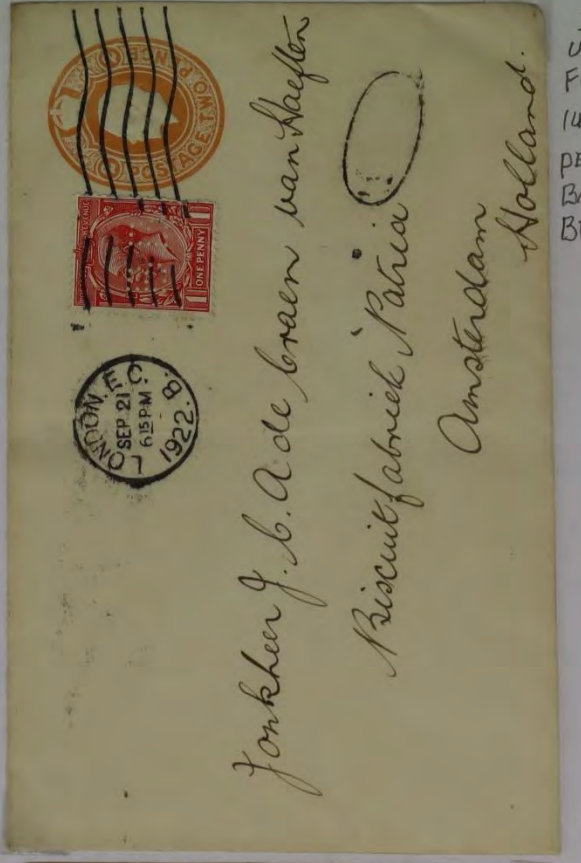 POSTAGE TWO PENCE
1 ONE PENNY 1
LONDON. E.C.
SEP 21
6 15 PM
1922. B.
Jonkheer J. C. A de Graen van Haeften
Biscuitfabriek "Patria"
Amsterdam
Holland.